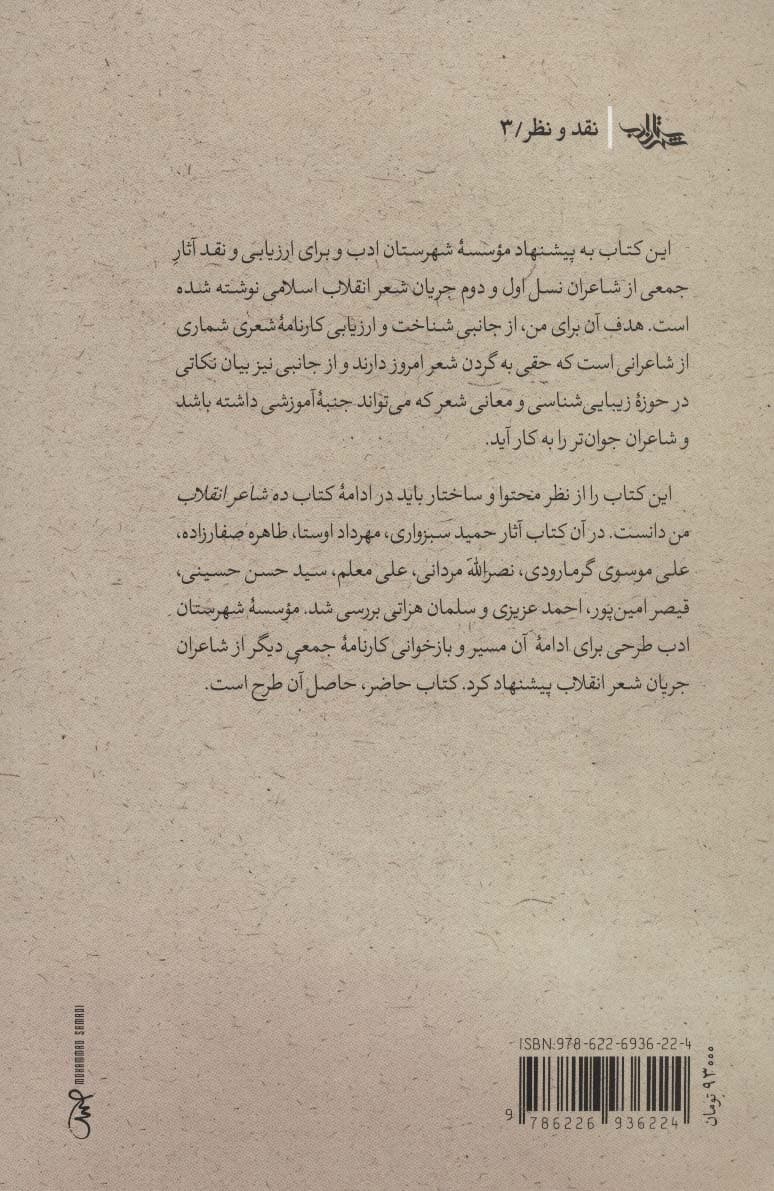 شهرستان ادب
نقد و نظر/۳
این کتاب به پیشنهاد مؤسسهٔ شهرستان ادب و برای ارزیابی و نقد آثارِ
جمعی از شاعران نسل اول و دوم جریان شعر انقلاب اسلامی نوشته شده
است. هدف آن برای من، از جانبی شناخت و ارزیابی کارنامهٔ شعری شماری
از شاعرانی است که حقی به گردن شعر امروز دارند و از جانبی نیز بیان نکاتی
در حوزهٔ زیبایی‌شناسی و معانی شعر که می‌تواند جنبهٔ آموزشی داشته باشد
و شاعران جوان‌تر را به کار آید.
این کتاب را از نظر محتوا و ساختار باید در ادامهٔ کتاب ده شاعر انقلاب
من دانست. در آن کتاب آثار حمید سبزواری، مهرداد اوستا، طاهره صفارزاده،
علی موسوی گرمارودی، نصرالله مردانی، علی معلم، سید حسن حسینی،
قیصر امین‌پور، احمد عزیزی و سلمان هراتی بررسی شد. مؤسسهٔ شهرستان
ادب طرحی برای ادامهٔ آن مسیر و بازخوانی کارنامهٔ جمعی دیگر از شاعران
جریان شعر انقلاب پیشنهاد کرد. کتاب حاضر، حاصل آن طرح است.
MOHAMMAD SAMADI
ISBN:978-622-6936-22-4
9 786226 936224
۹۳۰۰۰ تومان